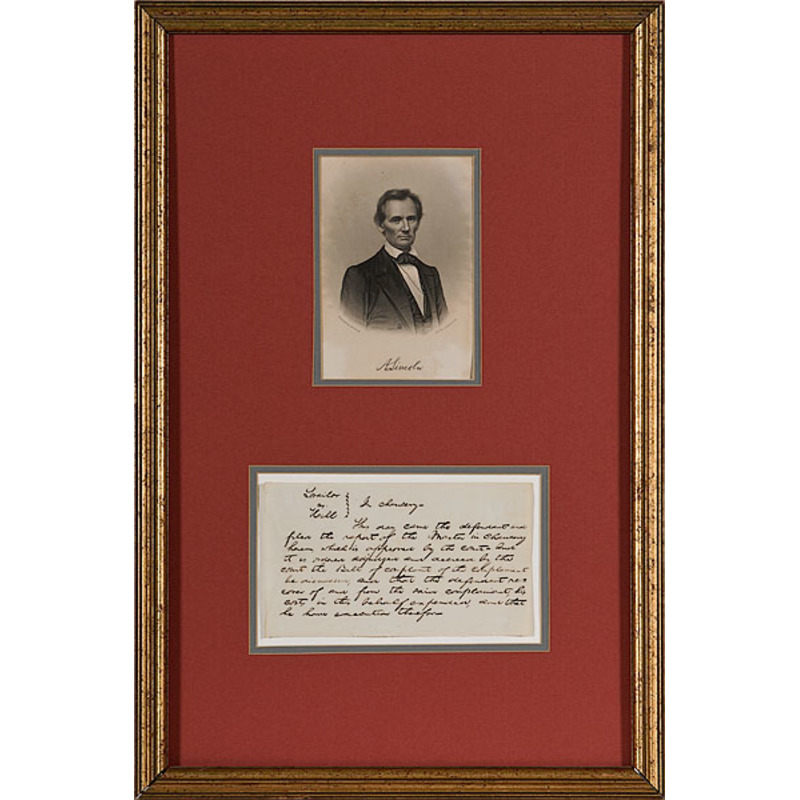 A. Lincoln
vs
Hill
In chancery
This day came the defendant and
files the report of the Master in Chancery
herein which is approved by the court And
it is ordered adjudged and decreed by the
court the Bill of complaint of the complainant
be dismissed, and that the defendant re
cover of and from the said complainant, his
costs in this behalf expended, and that
he have execution therefor